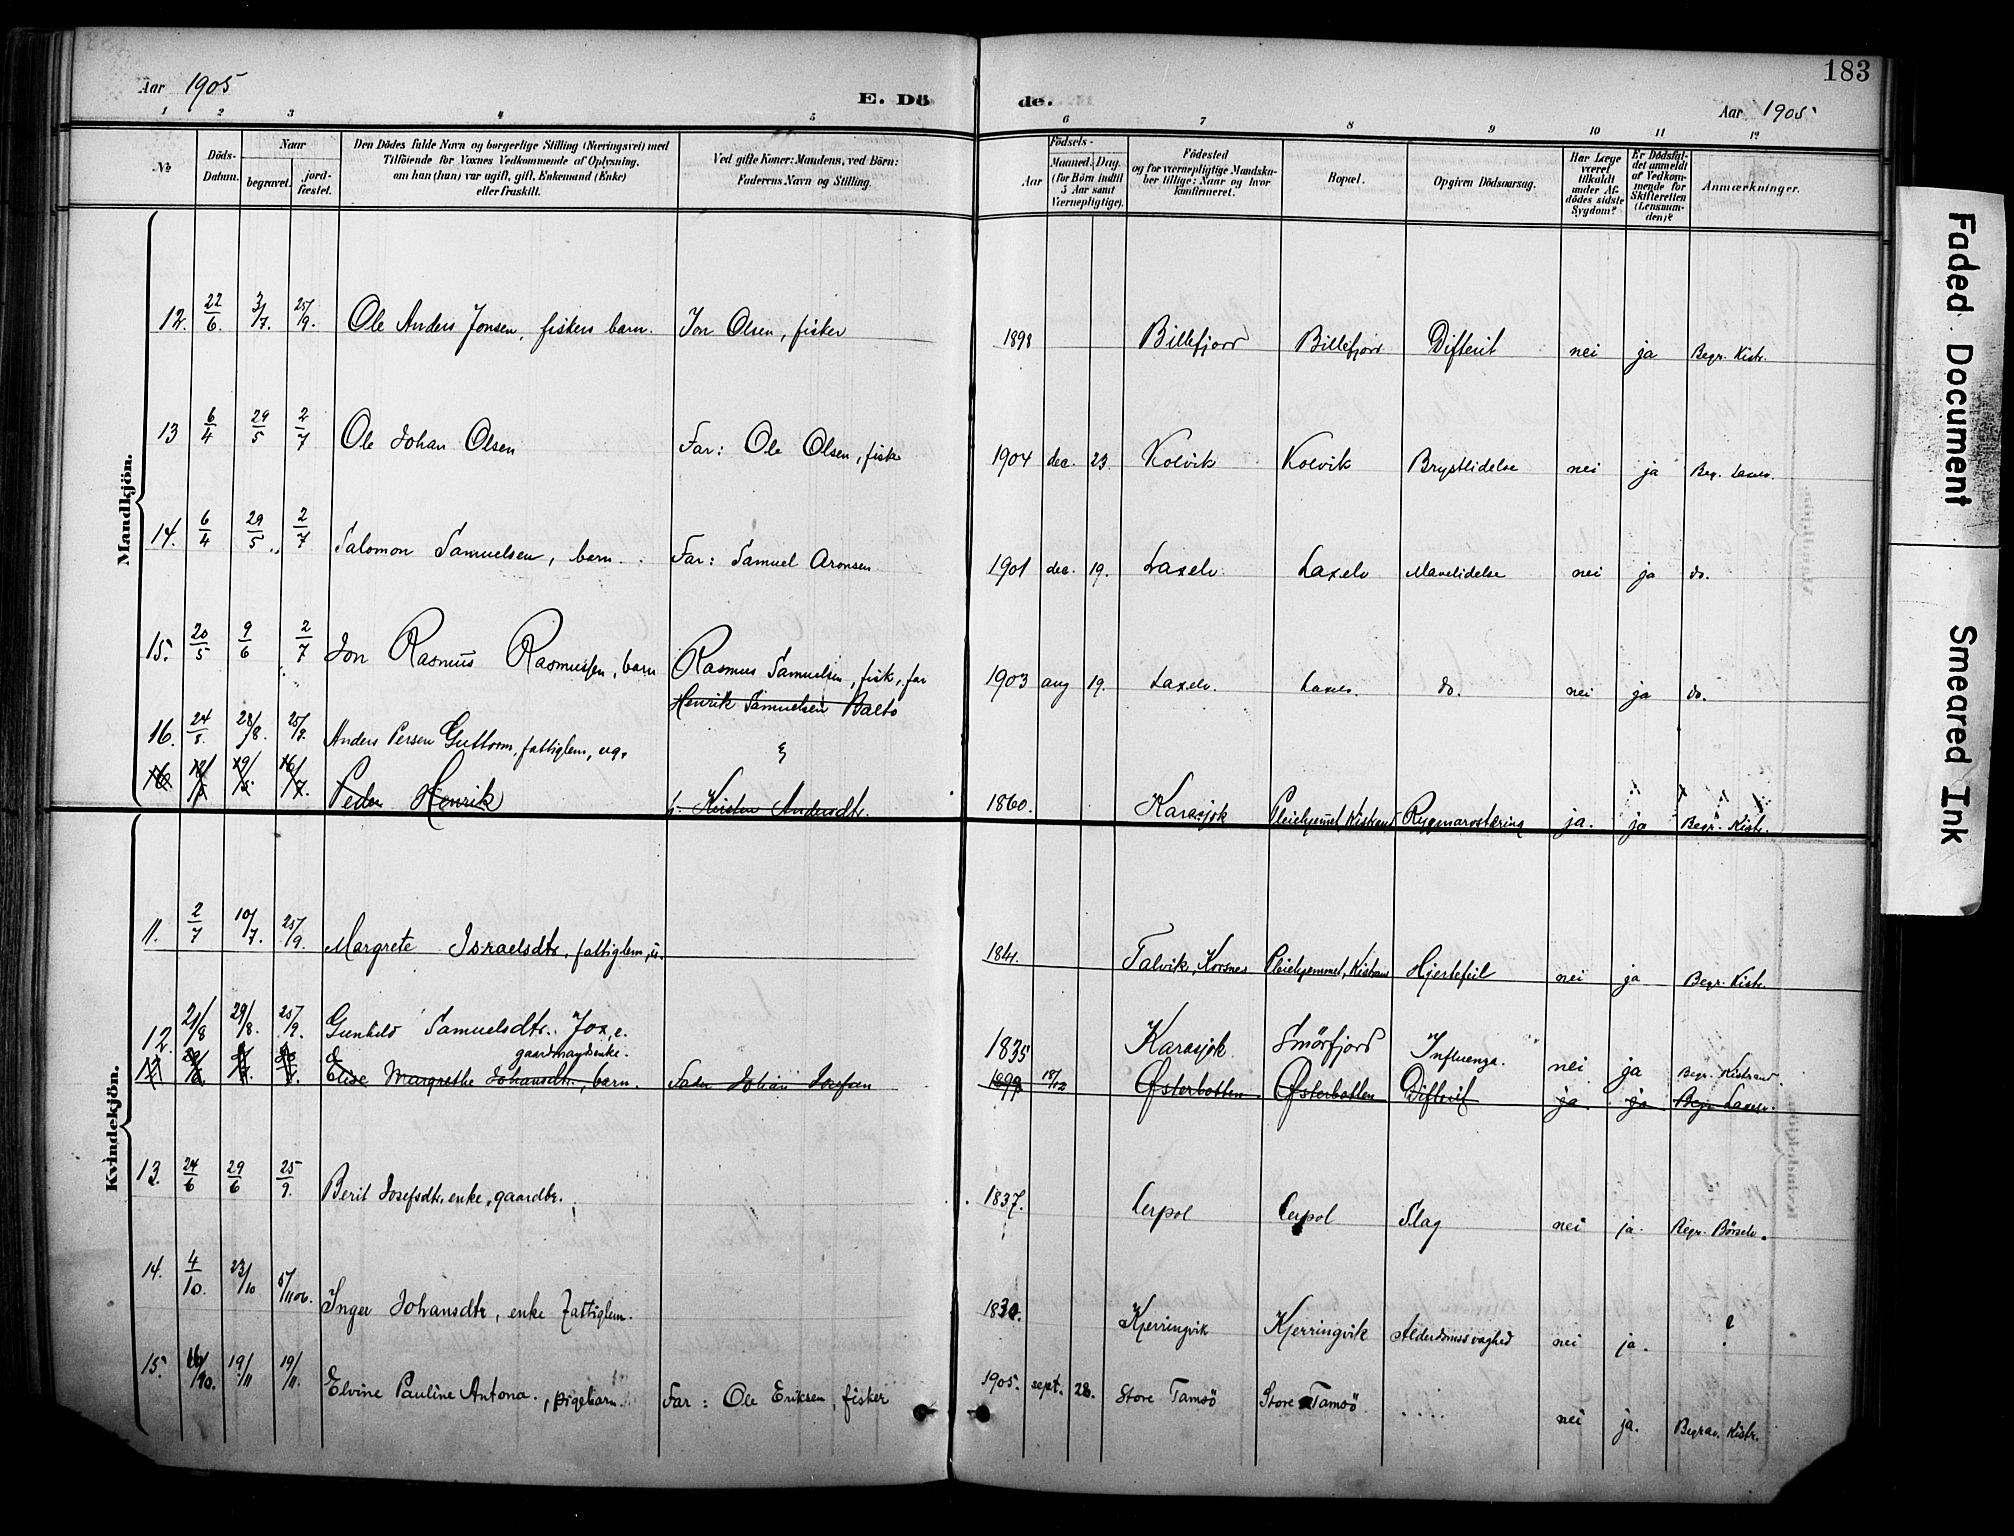 183
Aar 1905
E. Döde.
Aar 1905
1 2 3 4 5 6 7 8 9 10 11 12
№
Döds-Datum.
Naar
begravet.
jord-fæstet.
Den Dödes fulde Navn og borgerlige Stilling (Næringsvei) med
Tilföiende for Voxnes Vedkommende af Oplysning,
om han (hun) var ugift, gift, Enkemand (Enke)
eller fraskilt.
Ved gifte Koner: Mandens, ved Börn:
Faderens Navn og Stilling.
Födsels-
Aar
Maaned. Dag.
(for Börn indtil
5 Aar samt
Værnepligtige).
Födested
og for værnepligtige Mandska-
ber tillige: Naar og hvor
konfirmeret.
Bopæl.
Opgiven Dödsaarsag.
Har Læge
været
tilkaldt
under Af-
dödes sidste
Sygdom?
Er Dödsfal-
det anmeldt
af Vedkom-
mende for
Skifteretten
(Lensman-
den)?
Anmærkninger.
Mandkjön.
12. 22/6. 3/7. 25/9. Ole Anders Jonsen, fiskers barn. Jon Olsen, fisker 1898 Billefjord Billefjord Difterit nei ja Begr. Kistr.
13 6/4 29/5 2/7 Ole Johan Olsen Far: Ole Olsen, fisker 1904 dec. 23. Kolvik Kolvik Brystlidelse nei ja Beg. Laxelv.
14. 6/4 29/5 2/7 Salomon Samuelsen, barn. Far: Samuel Aronsen 1901 dec. 19. Laxelv. Laxelv Mavelidelse nei ja do.
15. 20/5 9/6 2/7 Jon Rasmus Rasmussen, barn Rasmus Samuelsen, fisk, far 1903 aug 19. Laxelv. Laxelv. do. nei ja do.
Henrik Samuelsen Balto
16. 24/8. 28/8. 25/9. Anders Persen Guttorm, fattiglem, ug. 1860. Karasjok Pleiehjemmet, Kistrand Rygmarvstæring ja. ja Begr. Kistr.
16 Peder Henrik h. Kirsten Andersdtr.
Kvindekjön.
11. 2/7 10/7. 25/9. Margrete Israelsdtr, fattiglem, u. 1841. Talvik, Korsnes Pleiehjemmet, Kistrand Hjertefeil nei ja Begr. Kistr.
12. 21/8 29/8. 25/9. Gunhild Samuelsdtr. Jox, e. 1835 Karasjok Smörfjord Influenza. nei ja Begr. Kistrand.
gaardmandsenke.
Elise Margrethe Johansdtr., barn. Fader Johan Josefsen 1899 15/12 Østerbotten Østerbotten Difterit ja ja Begr. Laxelv.
13. 24/6 29/6 25/9. Berit Josefsdtr. enke, gaardbr. 1837. Lerpol Lerpol Slag nei ja. Begr. Börselv.
14. 4/10. 23/10 5/11 06. Inger Johansdtr, enke fattiglem. 1830. Kjerringvik Kjerringvik Alderdomssvaghed nei ja. ?
15. 16/10. 19/11 19/11. Elvine Pauline Antona., pigebarn. Far: Ole Eriksen, fisker 1905. sept. 28. Store Tamsö Store Tamsö ..... nei ja. Begrav. Kistr.
Faded Document
Smeared Ink